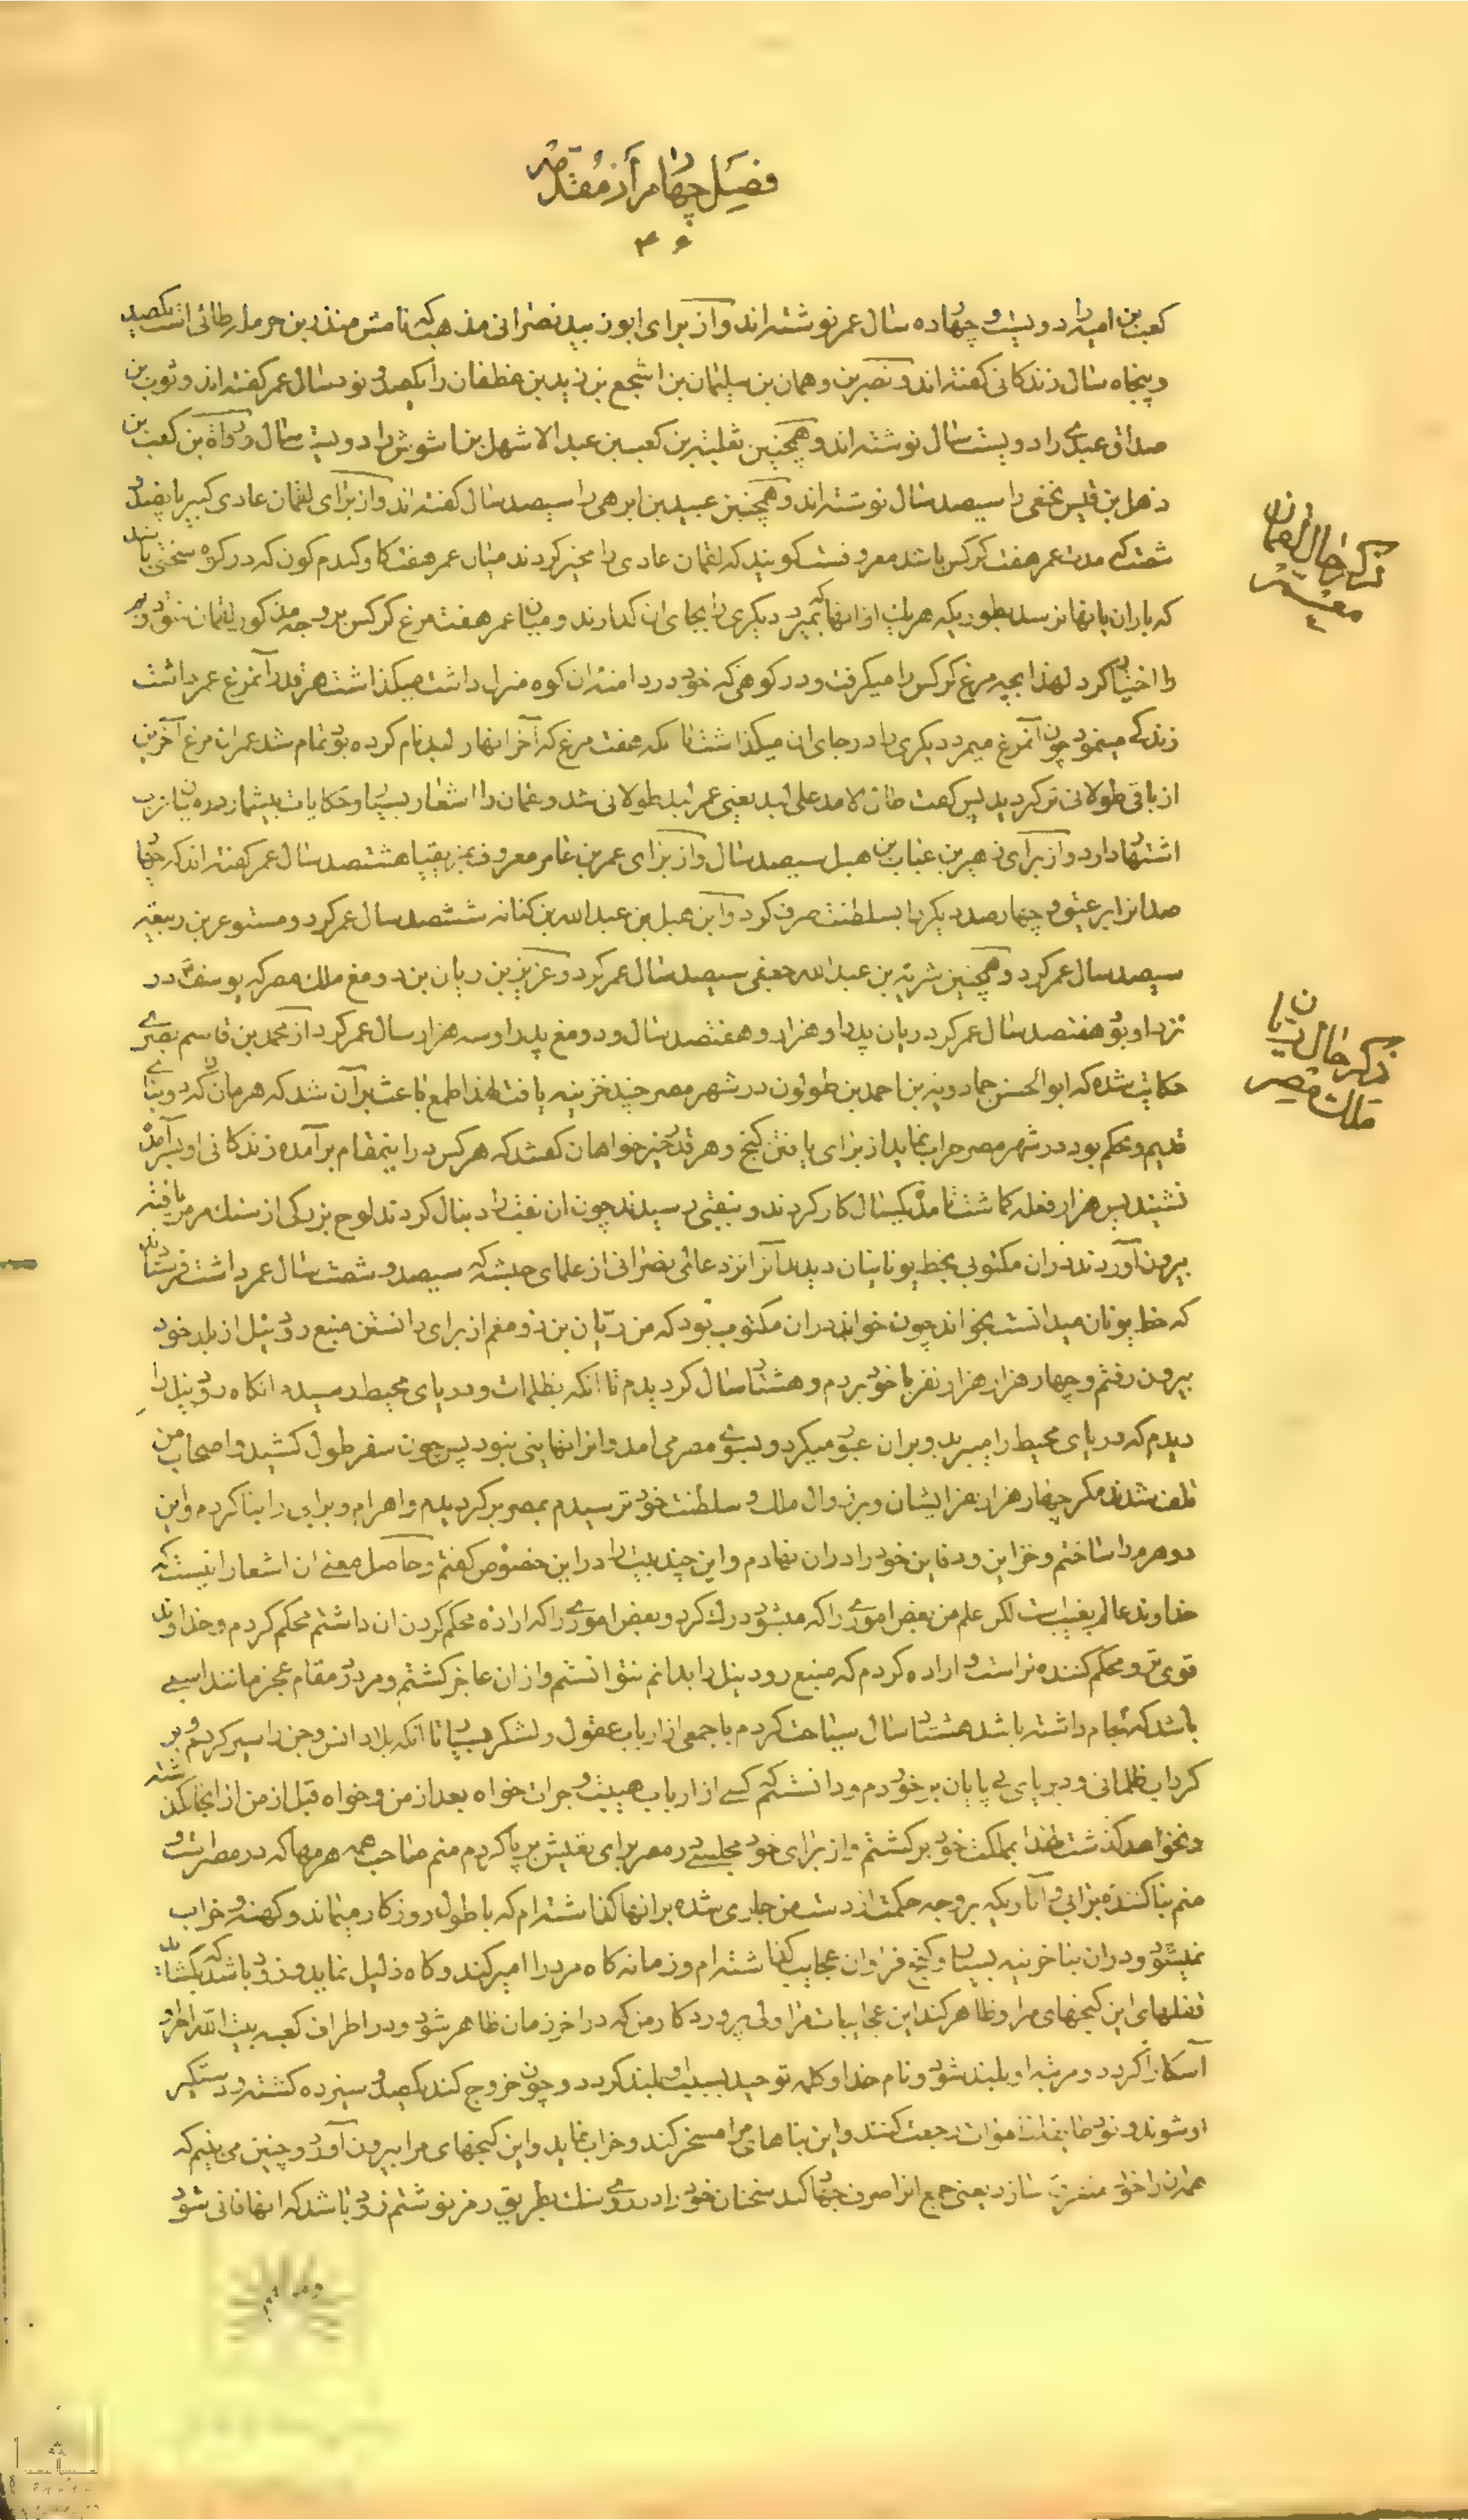 فصل چهارم از مقدمه
۴۰
کعب بن امیه را دویست و چهارده سال عمر نوشته اند و از برای ابو زبید نصرانی مذهب که نامش منذر بن حرمله طائی است یکصد
و پنجاه سال زندکانی کفته اند و نصر بن دهمان بن سلیمان بن اشجع بن زید بن غطفان را یکصد و نود سال عمر کفته اند و ثوب بن
صداق عبدی را دویست سال نوشته اند و همچنین ثعلبة بن کعب بن عبد الاشهل بن اشوش را دویست سال و رداة بن کعب بن
ذهل بن قیس نخعی را سیصد سال نوشته اند و همچنین عبید بن ابرهی را سیصد سال کفته اند و از برای لقمان عادی کبیر پانصد و
شصت که مدت عمر هفت کرکس باشد معروفست کویند که لقمان عادی را مخیر کردند میان عمر هفت کاو کندم کون که در کوه سختی باشند
که باران بانها نرسد بطوریکه هر یک از انها که بمیرد دیکری را بجای ان کذارند و میان عمر هفت مرغ کرکس بوجه مذکور لقمان شق دویم
را اختیار کرد لهذا بچه مرغ کرکس را میکرفت و در کوهی که خود در دامنه ان کوه منزل داشت میکذاشت هر قدر آنمرغ عمر داشت
زندکی مینمود چون آنمرغ میمرد دیکری را در جای ان میکذاشت تا بکه هفت مرغ که آخر انها را لبد نام کرده بود تمام شد عمر ان مرغ آخرین
از باقی طولانی تر کردید پس کفت طال الامد علی لبد یعنی عمر لبد طولانی شد و لقمان را اشعار بسیار و حکایات بیشمار در میان عرب
اشتهار دارد و از برای زهیر بن عتاب بن هبل سیصد سال و از برای عمر بن عامر معروف بمزیقیا هشتصد سال عمر کفته اند که چهار
صد انرا بر عیتی و چهارصد دیکر را بسلطنت صرف کرد و ابن هبل بن عبد الله بن کنانه ششصد سال عمر کرد و مستوعر بن ربیعه
سیصد سال عمر کرد و همچنین شریة بن عبد الله جعفی سیصد سال عمر کرد و عزیز بن ریان بن دومغ ملک مصر که یوسف در
نزد او بود هفتصد سال عمر کرد ریان پدر او هزار و هفتصد سال و دومغ پدر او سه هزار سال عمر کرد از محمد بن قاسم بصری
حکایت شده که ابوالحسن حمادویه بن احمد بن طولون در شهر مصر چند خزینه یافت لهذا طمع باعث بر آن شد که هرمان را که دو بنای
قدیم و محکم بود در شهر مصر خراب نماید از برای یافتن کنج و هر قدر خیرخواهان کفتند که هر کس در اینمقام برآمده زندکانی او بسر آمده
نشنید پس هزار فعله کماشت تا مدت یکسال کار کردند و بنقبی رسیدند چون ان نقب را دنبال کردند لوح بزرکی از سنک مرمر یافته
بیرون آوردند در ان مکتوبی بخط یونانیان دیدند آنرا نزد عالمی نصرانی از علمای حبشه که سیصد و شصت سال عمر داشت فرستادند
که خط یونان میدانست بخواند چون خواند در ان مکتوب بود که من ریان بن دومغم از برای دانستن منبع رود نیل از بلد خود
بیرون رفتم و چهار هزار هزار نفر با خود بردم و هشتاد سال کردیدم تا انکه بظلمات و دریای محیط رسیده انکاه رود نیل را
دیدم که دریای محیط را میبرید و بر ان عبور میکرد و بسوی مصر می امد و انرا نهایتی نبود پس چون سفر طول کشید و اصحاب من
تلف شدند مکر چهار هزار نفر ایشان و بر زوال ملک و سلطنت خود ترسیدم بمصر برکردیدم و اهرام و برابی را بنا کردم و این
دو هرم را ساختم و خزاین و دفاین خود را در ان نهادم و این چند بیت را در این خصوص کفتم و حاصل معنی ان اشعار اینست که
خداوند عالم بغیب است لکن علم من بعض اموری را که میشود درک کرد و بعض اموری را که اراده محکم کردن ان داشتم محکم کردم و خداوند
قوی تر و محکم کننده تر است و اراده کردم که منبع رود نیل را بدانم نتوانستم و از ان عاجز کشتم و مرد در مقام عجز مانند اسبی
باشد که لجام داشته باشد هشتاد سال سیاحت کردم با جمعی از ارباب عقول و لشکر بسیار تا انکه بلاد انس و جن را سیر کردم و بر
کرداب ظلمانی و دریای بی پایان برخوردم و دانستم که کسی از ارباب هیبت و جرات خواه بعد از من و خواه قبل از من از انجا نکذشته
و نخواهد کذشت لهذا بمملکت خود برکشتم و از برای خود مجلسی در مصر برای تعیش بر پا کردم منم صاحب همه هرمها که در مصر است و
منم بنا کننده برابی و آثاریکه بر وجه حکمت از دست من جاری شده بر انها کذاشته ام که با طول روزکار میماند و کهنه و خراب
نمیشود و در ان بنا خزینه بسیار و کنج فراوان عجایب کذاشته ام و زمانه کاه مرد را امیر کند و کاه ذلیل نماید و زود باشد که بکشاید
قفلهای این کنجهای مرا و ظاهر کند این عجایبات مرا ولی پروردکار من که در اخر زمان ظاهر شود و در اطراف کعبه بیت الله امر او
آشکارا کردد و مرتبه او بلند شود و نام خدا و کلمه توحید بسبب او بلند کردد و چون خروج کند یکصد و سیزده کشته و دستکیر
او شوند و نود طایفه از اموات رجعت کنند و این بناهای مرا مسخر کند و خراب نماید و این کنجهای مرا بیرون آورد و چنین می بینم که
همه ان را خود متفرق سازد یعنی جمیع انرا صرف جهاد کند سخنان خود را در روی سنک بطریق رمز نوشتم زود باشد که انها فانی شود
ذکر حال لقمان
ذکر حال ریان
ملک مصر